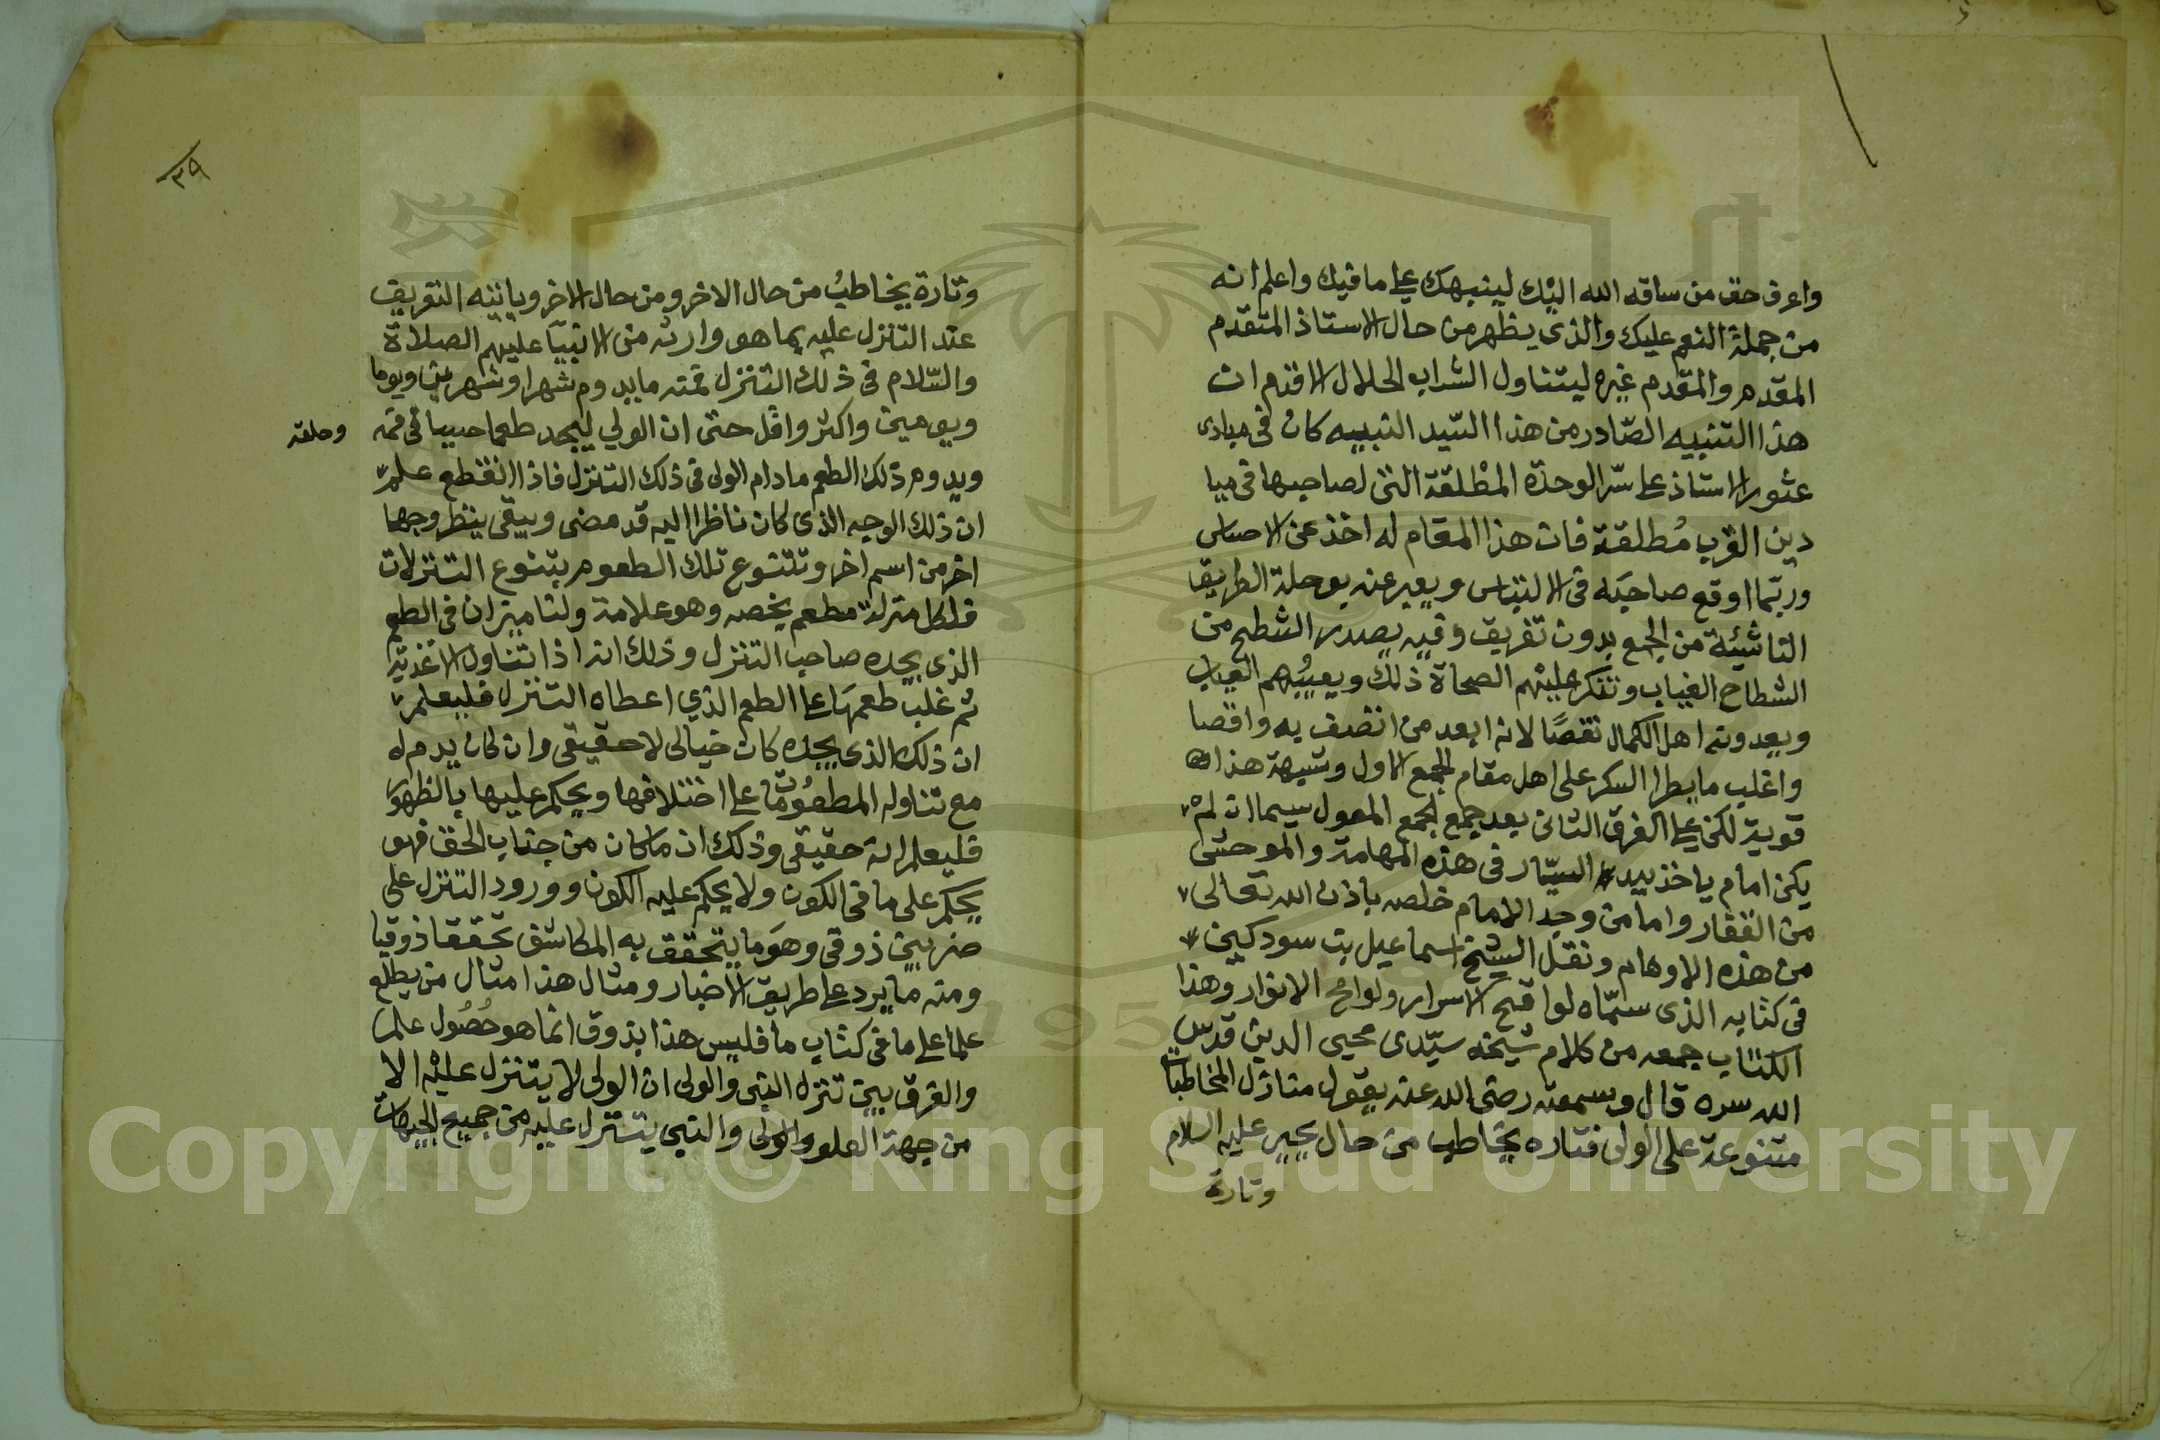 واعرف حق من ساقه الله اليْك لينبهك على ما فيك واعلم انه
من جملة النعم عليك والذى يظهر من حال الاستاذ المتقدم
المقدم والمقدم غيره ليتناول الشراب الحلال الاقدم ان
هذا التنبيه الصّادر من هذا السّيد النبيه كان فى مبادى
عثور الاستاذ على سّر الوحدة المطْلقة التى لصاحبها فى ميا
دين القرب مُطلقة فان هذا المقام له اخذ عن الاحساس
وربّما اوقع صاحبَه فى الالتباس ويعبر عنه بوحلة الطريق
الناشئة من الجمع بدون تفريق وفيه يصدر الشطح من
الشطاح الغياب وتنكر عليْهم الصحاة ذلك ويعيبُهم العياب
ويعدونه اهل الكمال نقصًا لانه ابعد من اتصف به واقصا
واغلب ما يطرا السكر على اهل مقام الجمع الاول وشبهة هذا
قوية لكن على الفرق الثانى بعد جمع الجمع المعول سيما ان لم
يكن امام ياخذ بيد السيّار فى هذه المهامة والموحش
من القفار واما من وجد الامام خلصه باذن الله تعالى
من هذه الاوهام ونقل الشيخ اسماعيل بن سودكين
فى كتابه الذى سمّاه لواقح الاسرار ولوامح الانوار وهذا
الكتاب جمعه من كلام شيخه سيّدى محيى الدين قدس
الله سره قال وسمعته رضى الله عنه يقول منازل المخاطبات
متنوعة على الولى فتاره يخاطب من حال يحيى عليه السلام
وتارة
٣٩
وتارة يخاطبُ من حال الاخر ومن حال الاخر وياتيه التعريف
عند التنزل عليه بما هو وارثه من الانبيآ عليهم الصلاة
والسّلام فى ذلك التنزل فمنه ما يدوم شهرا وشهرين ويوما
ويومين واكثر واقل حتى ان الولي ليجد طعما حسيا فى فمه
وحلقه
ويدوم ذلك الطعم ما دام الولى فى ذلك التنزل فاذا انقطع علم
ان ذلك الوجه الذى كان ناظرا اليه قد مضى ويبقى ينظر وجها
اخر من اسم اخر وتتنوع تلك الطعوم بتنوع التنزلات
فلكل منزلة مطعم يخصه وهو علامة ولنا ميزان فى الطعم
الذى يجده صاحب التنزل وذلك انه اذا تناول الاغذية
ثم غلب طعمهَا على الطعم الذي اعطاه التنزل فليعلم
ان ذلك الذى يجده كان خيالى لا حقيقى وان كان يدم له
مع تناوله المطعُومَات على اختلافها ويحكم عليها بالظهوَر
فليعلم انه حقيقى وذلك ان ما كان من جناب الحق فهو
يحكم على ما فى الكون ولا يحكم عليه الكون وورود التنزل على
ضربين ذوقى وهوَ ما يتحقق به المكاشف تحققا ذوقيا
ومنه ما يرد على طريق الاخبار ومثال هذا مثال من يطلع
علما على ما فى كتاب ما فليس هذا بذوق انما هو حُصُول علم
والفرق بين تنزله النبى والولى ان الولى لا يتنزل عليْه الا
من جهة العلو والنبي يتنزل عليه من جميع الجهات
Copyright © King Saud University
1957